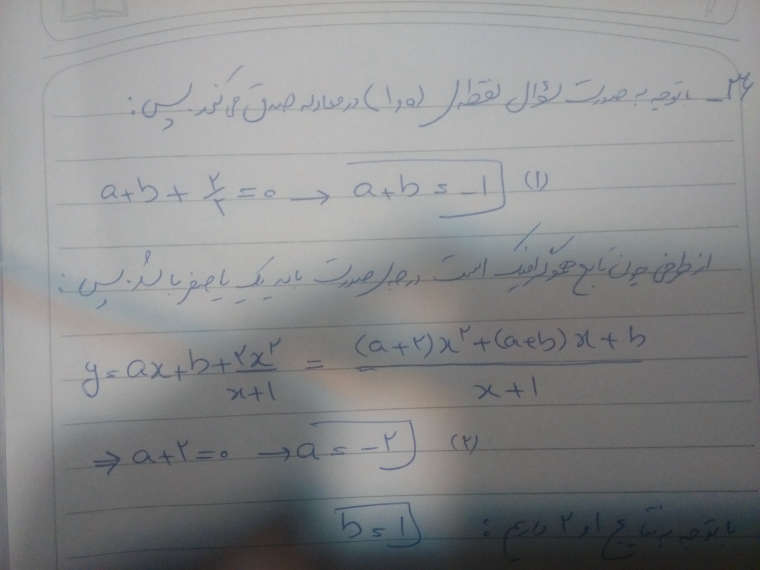 ۲۶_ باتوجه به صورت سؤال نقطه (۱و۰) در معادله صدق می‌کند پس:
a+b+ ۲/۲ = ۰ → a+b = -1 (۱)
از طرفی چون تابع هموگرافیک است درجه صورت باید یک یا صفر باشد. پس:
y = ax+b+ ۲x^۲/x+1 = (a+۲)x^۲+(a+b)x+b/x+1
⇒ a+۲=۰ → a = -۲ (۲)
باتوجه به نتایج ۱ و ۲ داریم: b = 1